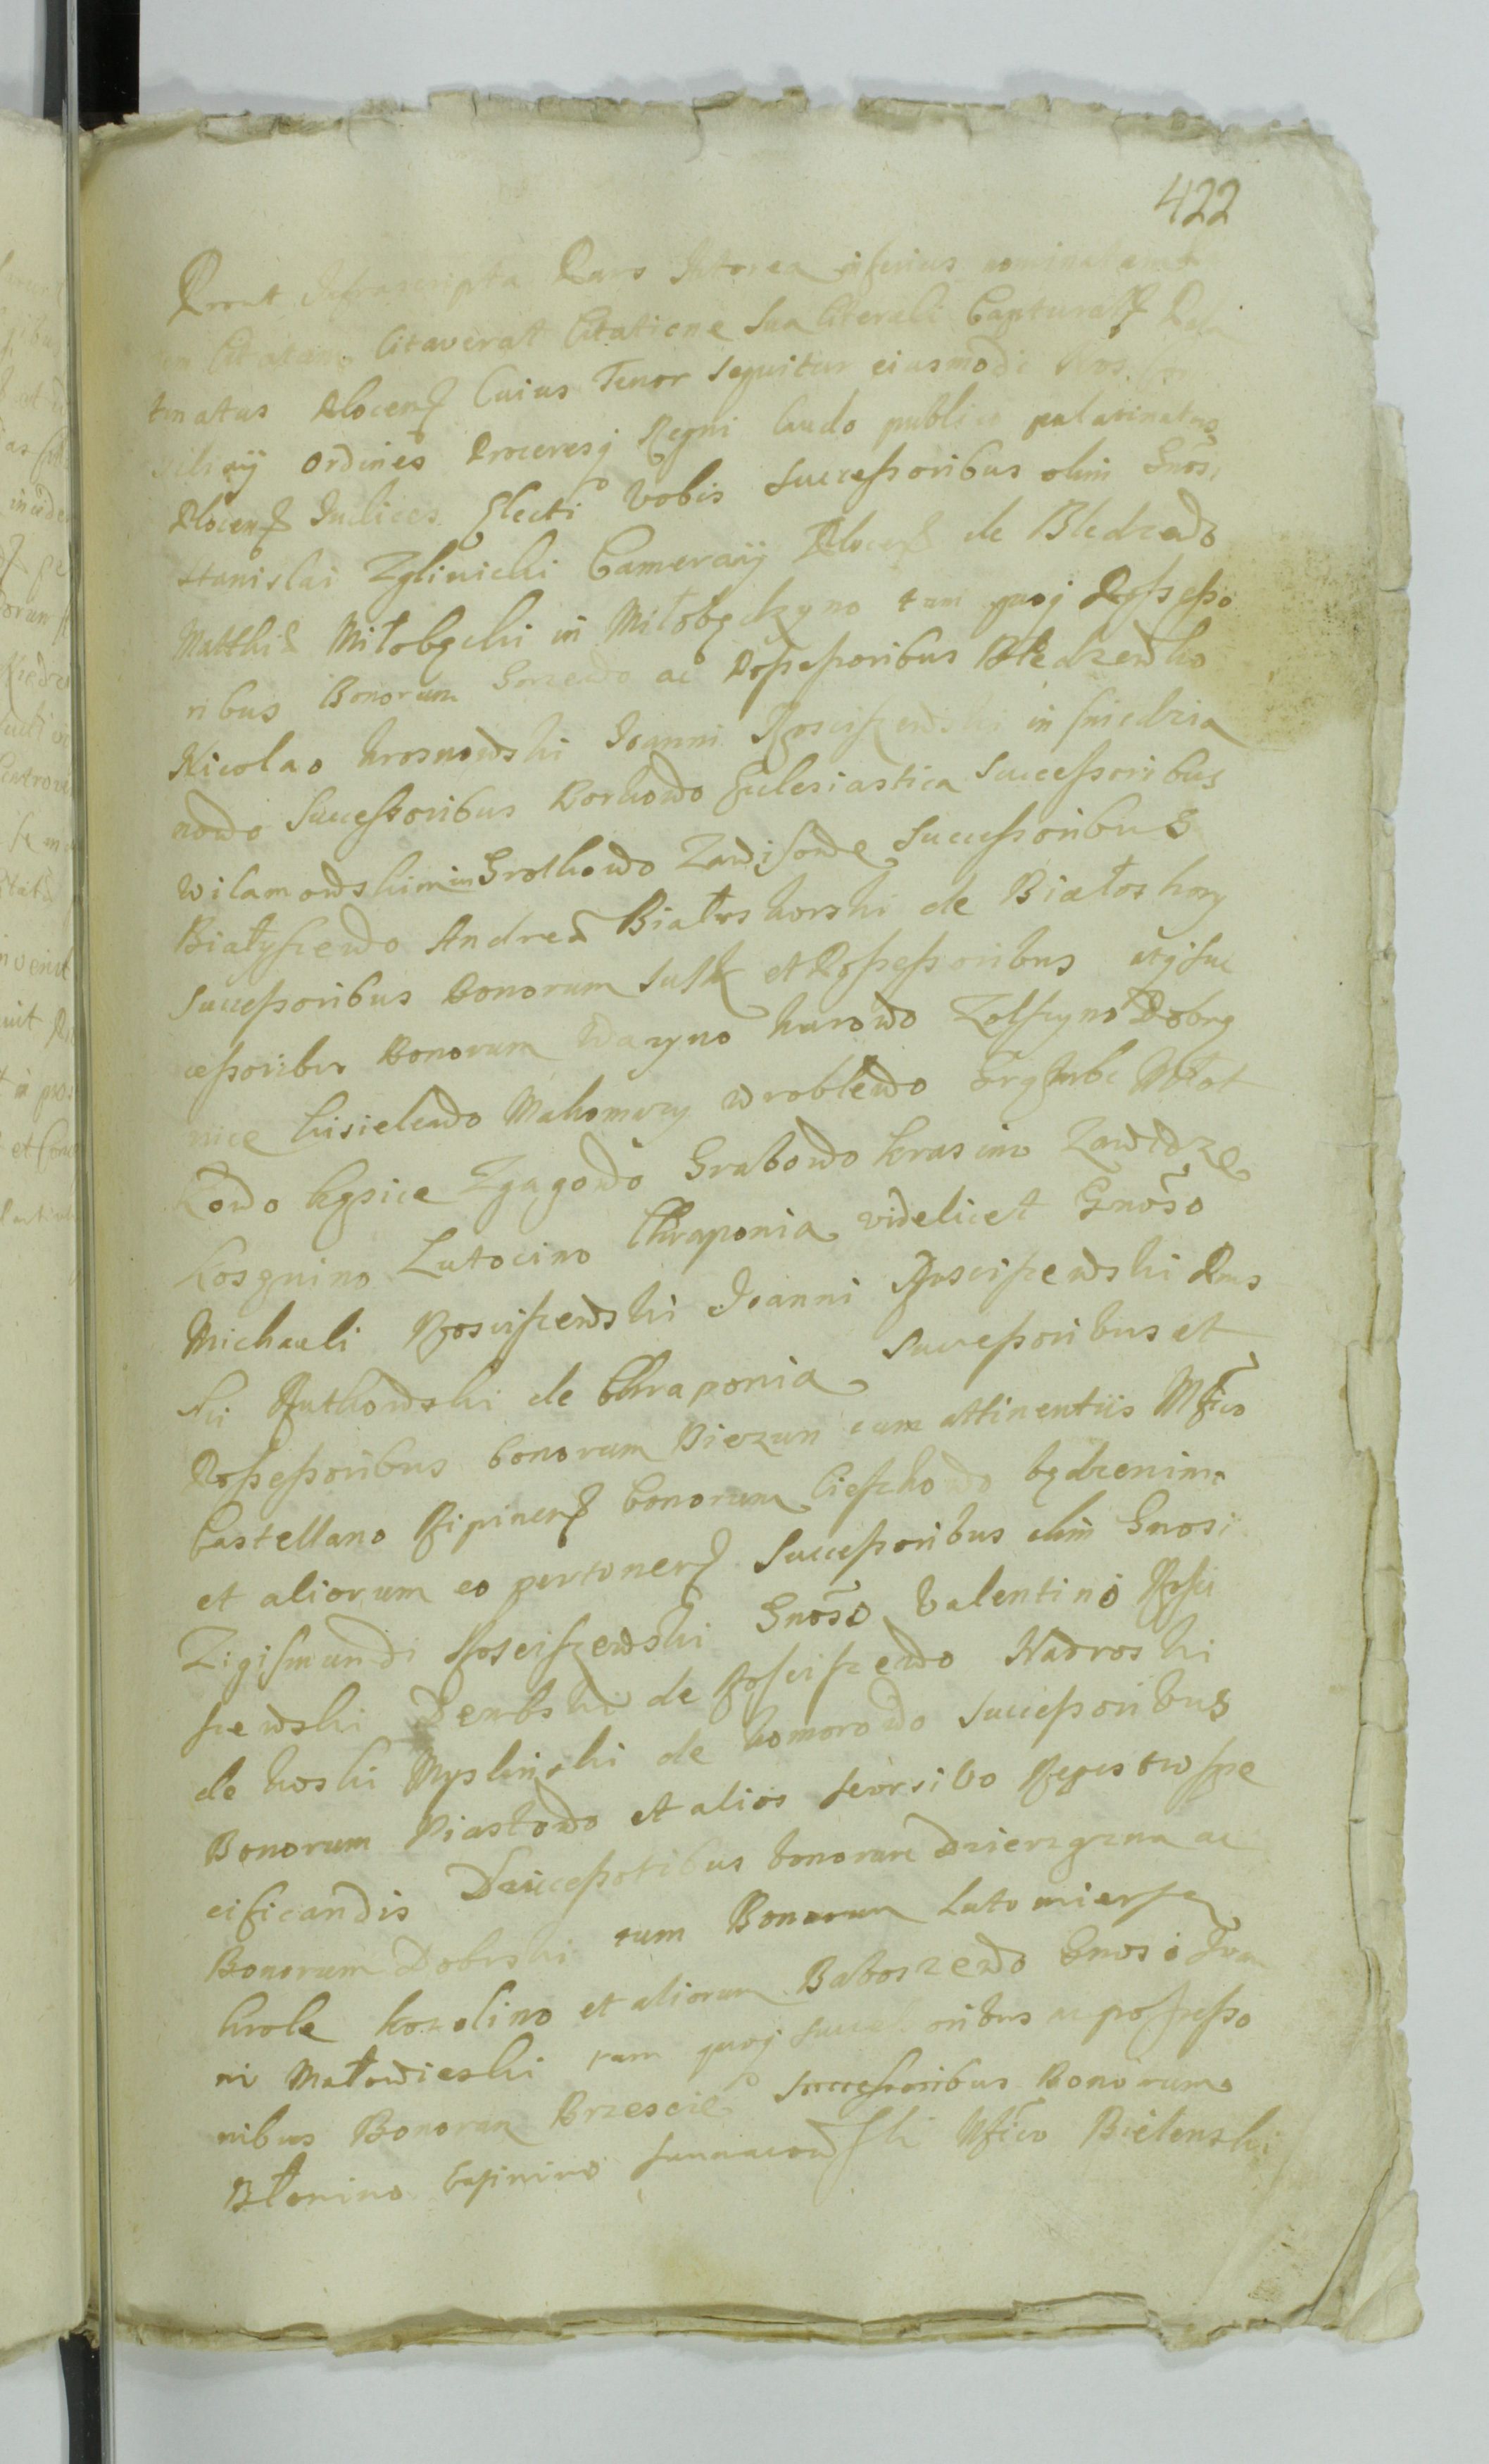 422
Prout Infrascripta Pars Actorea inferius nominatam
Citatam Citaverat Citatione sua literali Captural Pala
tinatus Plocen Cuius Tenor sequitur eiusmodi Nos
Ordines Proceresq Regni laudo publico palatinatus
Plocen Iudices Electi Vobis Successoribus olim Gnosi
Stanislai Zglinicki Camerarij Plocen de Bledzewo
Matthiæ Miłobęcki in Miłobęckyno tum quoq Possesso
ribus Bonorum Gorzewo ac Possessoribus Bledzewko
Nicolao Krosnowski Ioanni Rosciszewski in Sniedzia
nowo Successoribus Borkowo Ecclesiastica Successoribus
Wilamowskim in Grotkowo Zawisowe Successoribus
Białyszewo Andreæ Białoskorski de Białoskory
Successoribus Bonorum Susk et Possessoribus atq Suc
cessoribus Bonorum Wazyno Kurowo Zolszyno Dobrz
nice Kisielewo Makomazy Wroblewo
kowo Kęsice Zgagowo Grabowo Krasino Zawidze
Kosquino Lutocino Chraponia videlicet Gnoso
Michaeli Rosciszewski Ioanni Rosciszewski Rus
ki Rutkowski de Chraponia Successoribus et
Possessoribus bonorum Biezun cum attinentiis Mfico
Castellano Ripinen bonorum Cieszkowo będzenimo
et aliorum eo pertinen Successoribus olim Gnosi
Zigismundi Rosciszewski Gnoso Valentino Rosci
szewski Dembski de Rosciszewo Nadroski
de Koski Myslinski de Komorowo Successoribus
Bonorum Piastowo et alios seorsivo Regestro spe
cificandis Successoribus bonorum Dzierzgzna ac
Bonorum Dobrski tum Bonorum Lutomiersz
Krole Kozolino et aliorum Baboszewo Gnoso Ioan
ni Małowieski tum quoq Successoribus ac possesso
ribus Bonorum Brzescie Successoribus Bonorum
Błonino Mfico Bielenski